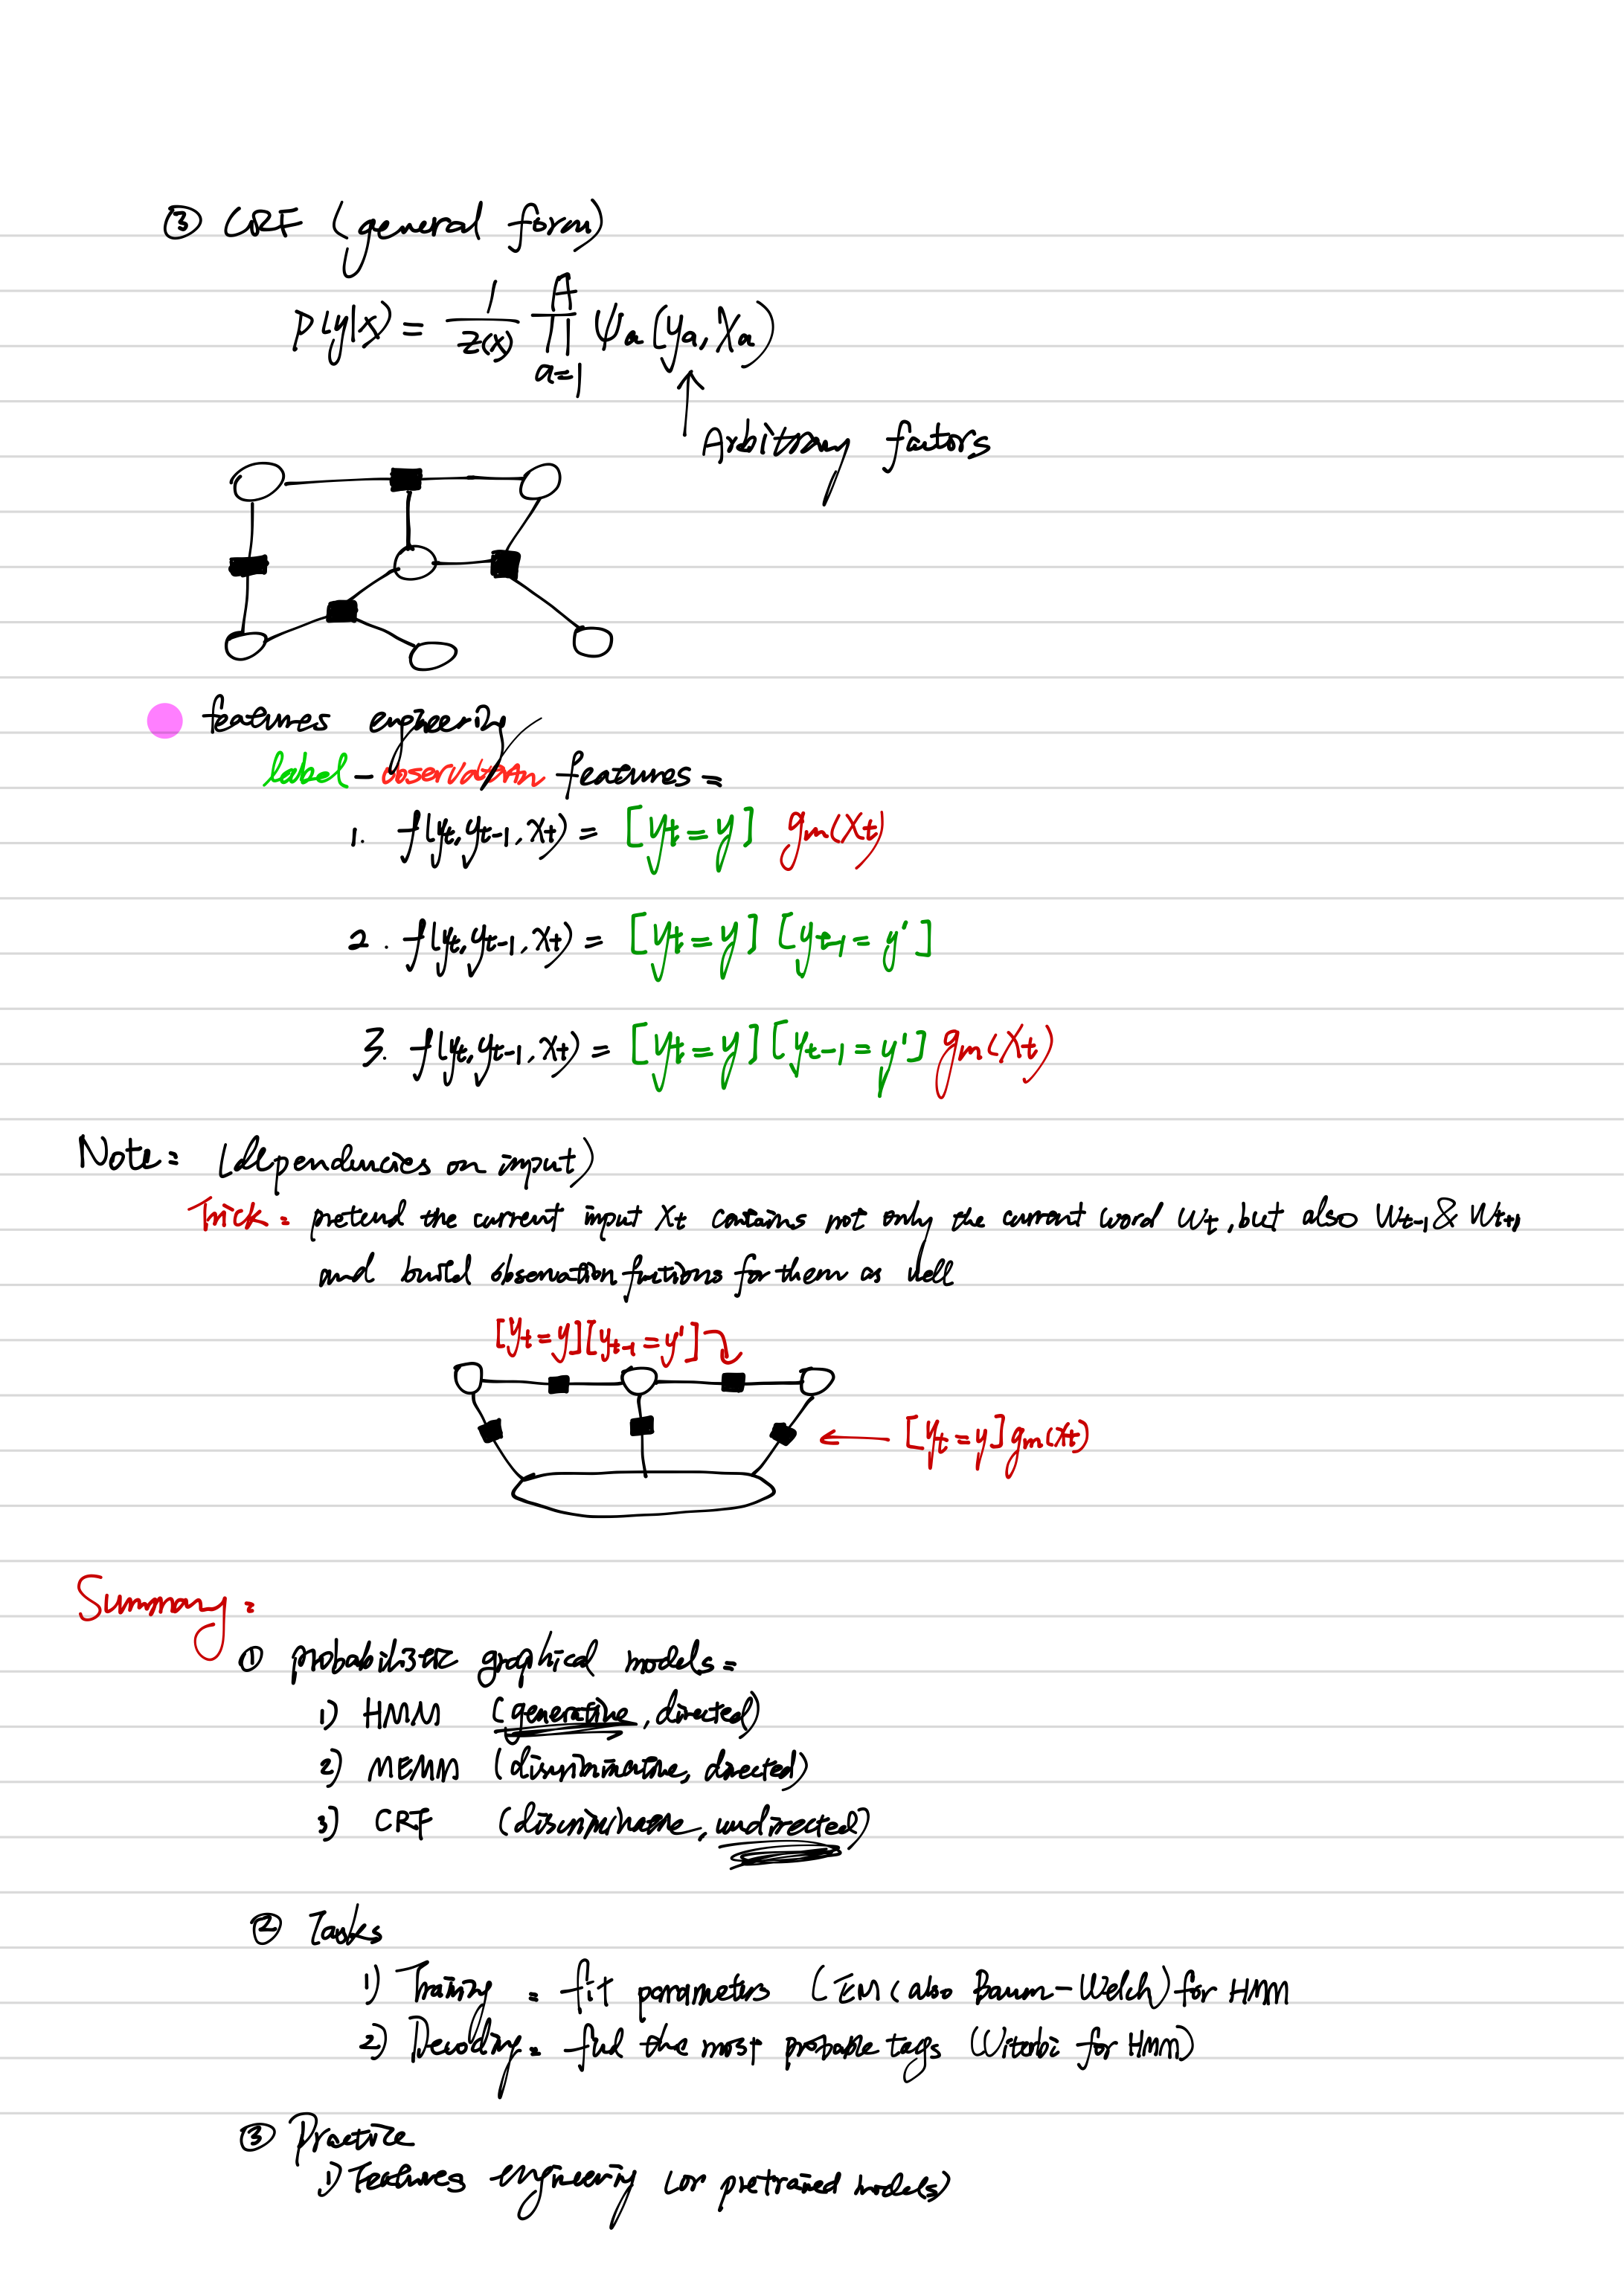 ③ CRF (general form)
p(y|x) = 1/Z(x) ∏_{a=1}^{A} Ψa (ya, xa)
Arbitrary factors
features engineering
label - observation features =
1. f(yt, yt-1, xt) = [yt = y] gm(xt)
2. f(yt, yt-1, xt) = [yt = y] [yt-1 = y']
3. f(yt, yt-1, xt) = [yt = y] [yt-1 = y'] gm(xt)
Note = (dependencies on input)
Trick = pretend the current input xt contains not only the current word wt, but also wt-1 & wt+1
and build observation functions for them as well
[yt = y][yt-1 = y']
[yt = y] gm(xt)
Summary =
① probabilistic graphical models =
1) HMM (generative, directed)
2) MEMM (discriminative, directed)
3) CRF (discriminative, undirected)
② Tasks
1) Training = fit parameters (EM (also Baum-Welch) for HMM
2) Decoding = find the most probable tags (Witerbi for HMM)
③ Practice
1) Features engineering (or pretrained models)